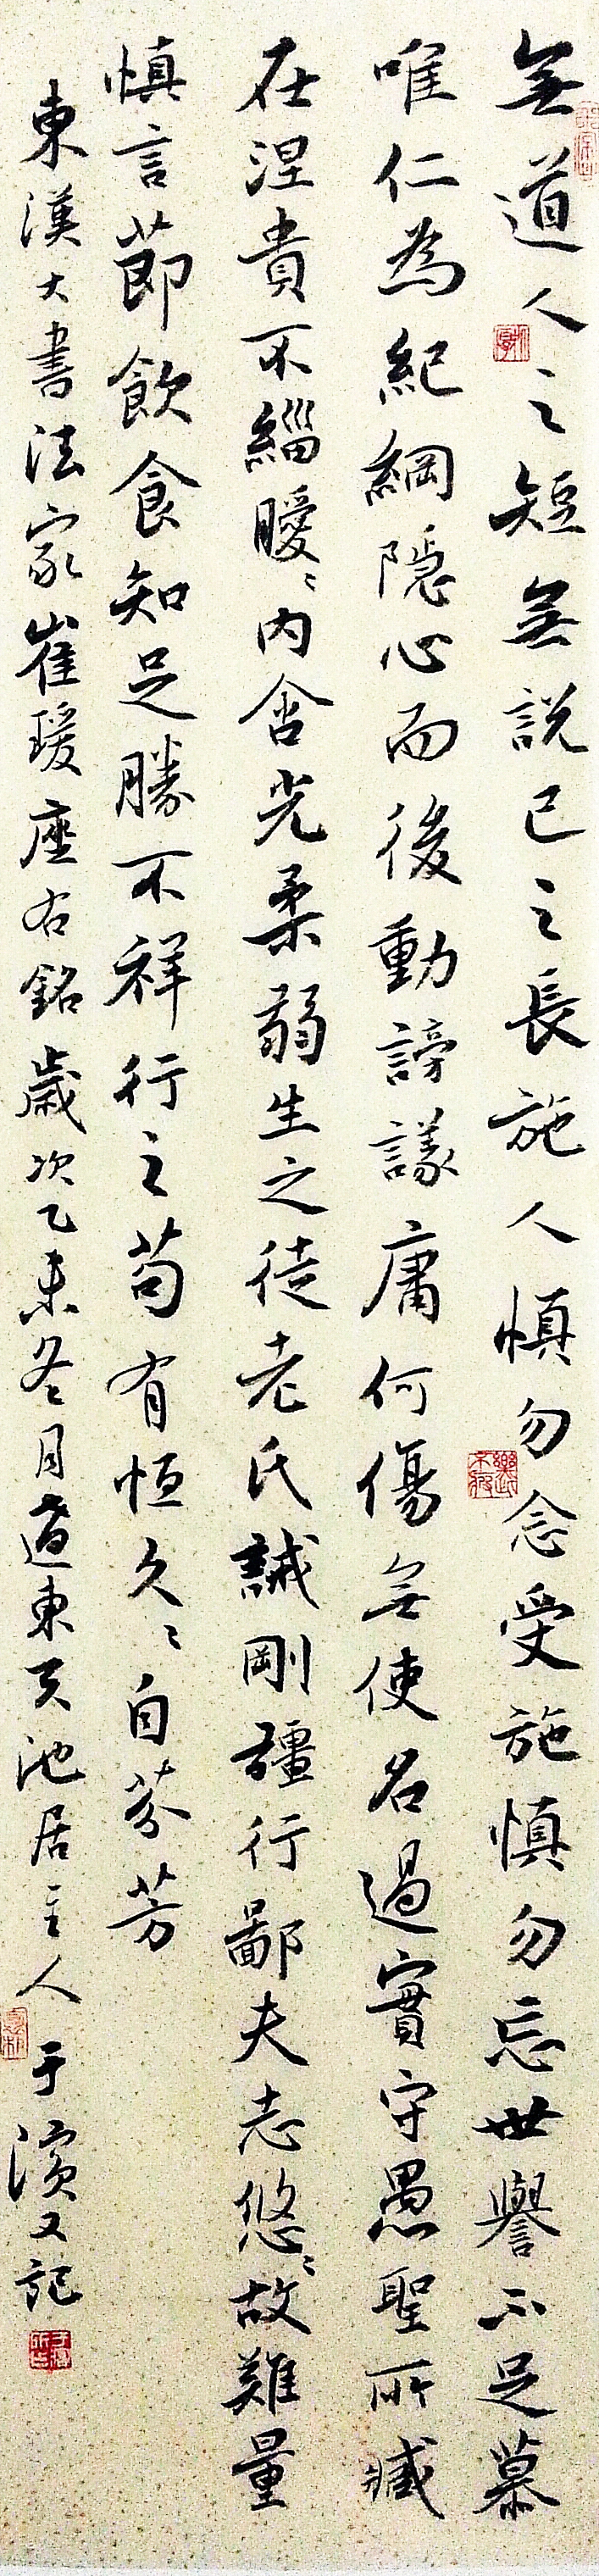 無道人之短無説己之長施人慎勿念受施慎勿忘世譽不足慕
唯仁為紀綱隱心而後動謗議庸何傷無使名過實守愚聖所臧
在涅貴不緇曖〻内含光柔弱生之徒老氏誡剛彊行鄙夫志悠〻故難量
慎言節飲食知足勝不祥行之苟有恒久〻自芬芳
東漢大書法家崔瑗座右銘歲次乙未冬月遼東天池居主人于濱又記